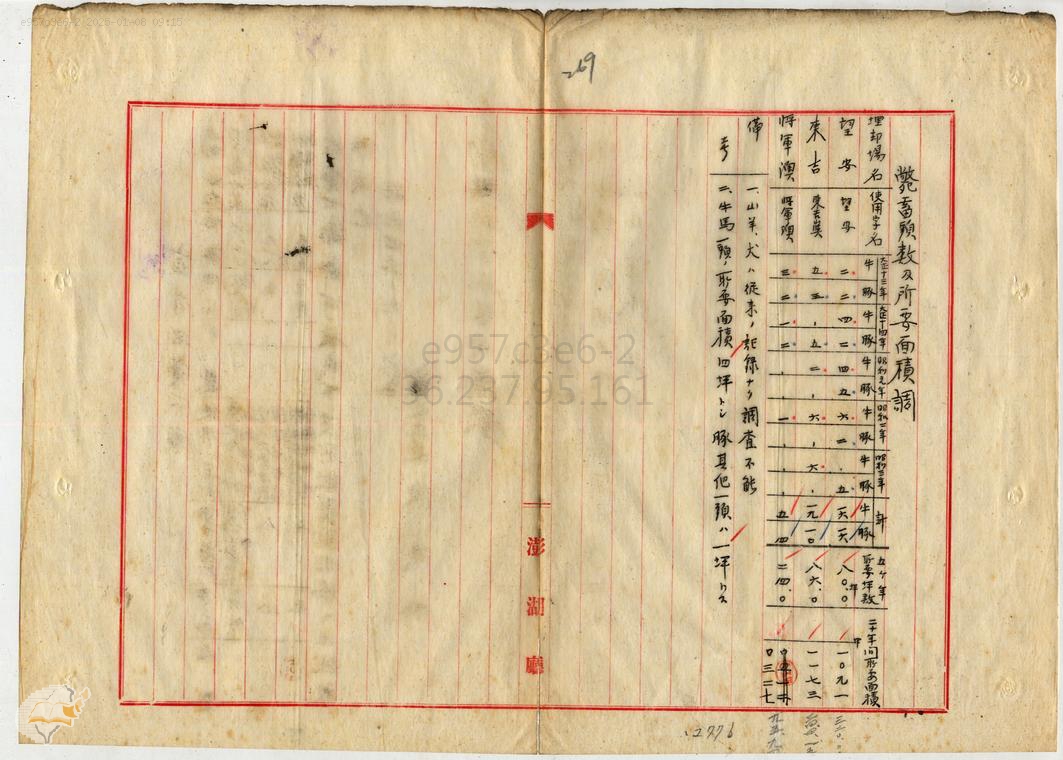 269
斃畜頭数及所要面積調
埋却場名 使用字名 大正十三年 牛 豚 大正十四年 牛 豚 昭和元年 牛 豚 昭和二年 牛 豚 昭和三年 牛 豚 計 牛 豚 五ヶ年所要坪数 二十年間所要面積
望安 望安 二 二 四 二 四 五 六 二 、 五 一六 一六 八〇.〇 一〇九一
東吉 東吉 五 三 、 五 二 、 六 、 六 、 一九 一〇 八六.〇 一一七三
将軍澳 将軍澳 三 二 一 二 、 、 一 、 、 、 五 四 二四.〇 〇三二七
備考
一、山羊、犬ハ従来ノ記録ナク調査不能
二、牛馬一頭ノ所要面積四坪トシ豚其他一頭ハ一坪トス
澎湖廳
2776
e957c3e6-2
36.237.95.161